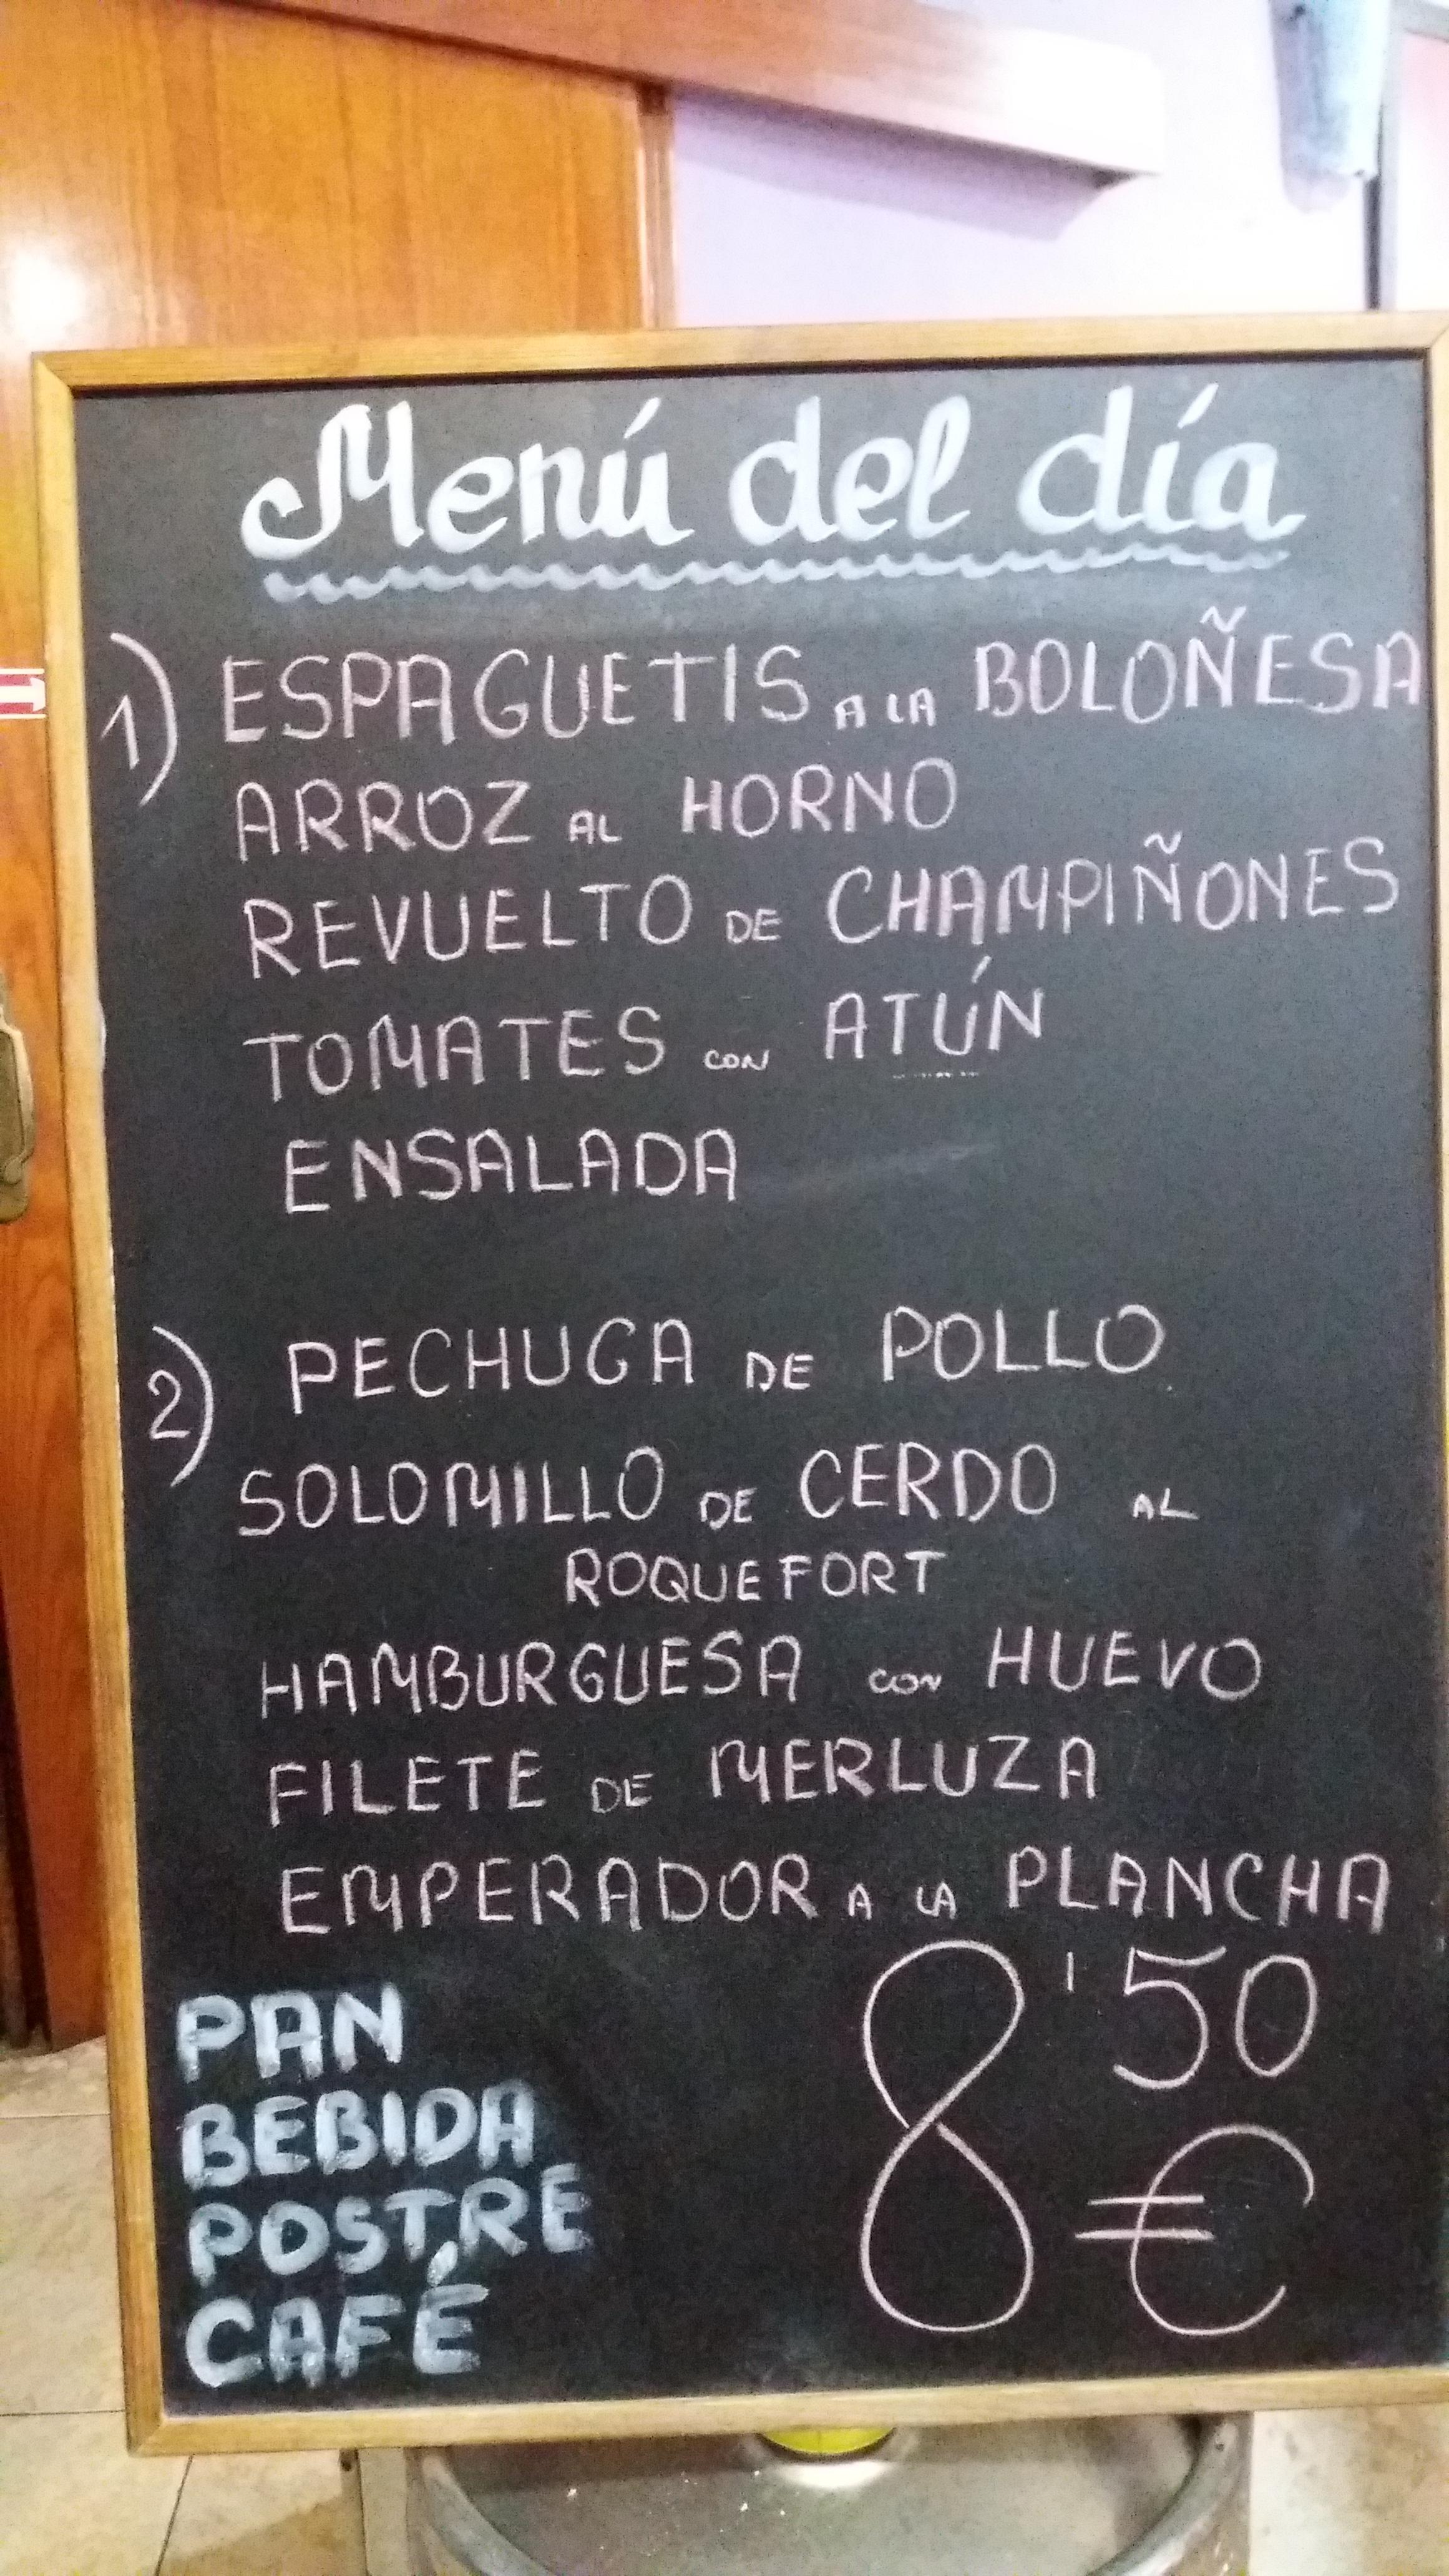 Menú del día
1) ESPAGUETIS A LA BOLOÑESA
ARROZ AL HORNO
REVUELTO DE CHAMPIÑONES
TOMATES CON ATÚN
ENSALADA
2) PECHUGA DE POLLO
SOLOMILLO DE CERDO AL
ROQUEFORT
HAMBURGUESA CON HUEVO
FILETE DE MERLUZA
EMPERADOR A LA PLANCHA
PAN
BEBIDA
POSTRE
CAFÉ
8'50
€